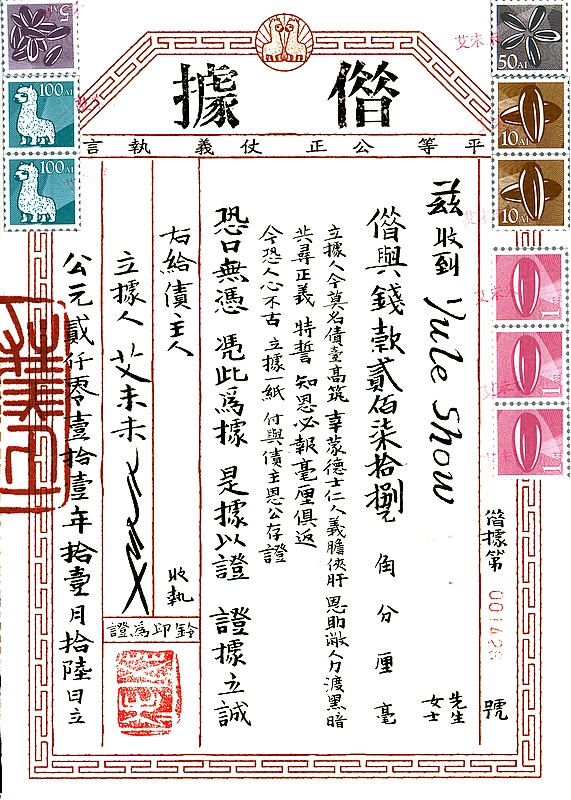 僣據
平等 公正 仗義 執言
僣據第 001426 號
茲收到 Yule Show 先生 女士
僣與錢款貳佰柒拾捌 角 分 厘 毫
立據人今莫名債臺高筑 幸蒙德士仁人義膽俠肝 恩助敝人力渡黑暗
共尋正義 特誓 知恩必報毫厘俱返
今恐人心不古 立據一紙 付與債主恩公存證
恐口無憑 憑此爲據 是據以證 證據立誠
右給債主人 收執
立據人 艾未未
鈐印爲證
公元貳仟零壹拾壹年拾壹月拾陸日立
5 AI
100AI
100AI
50AI
10AI
10AI
1 AI
1 AI
1 AI
艾未未